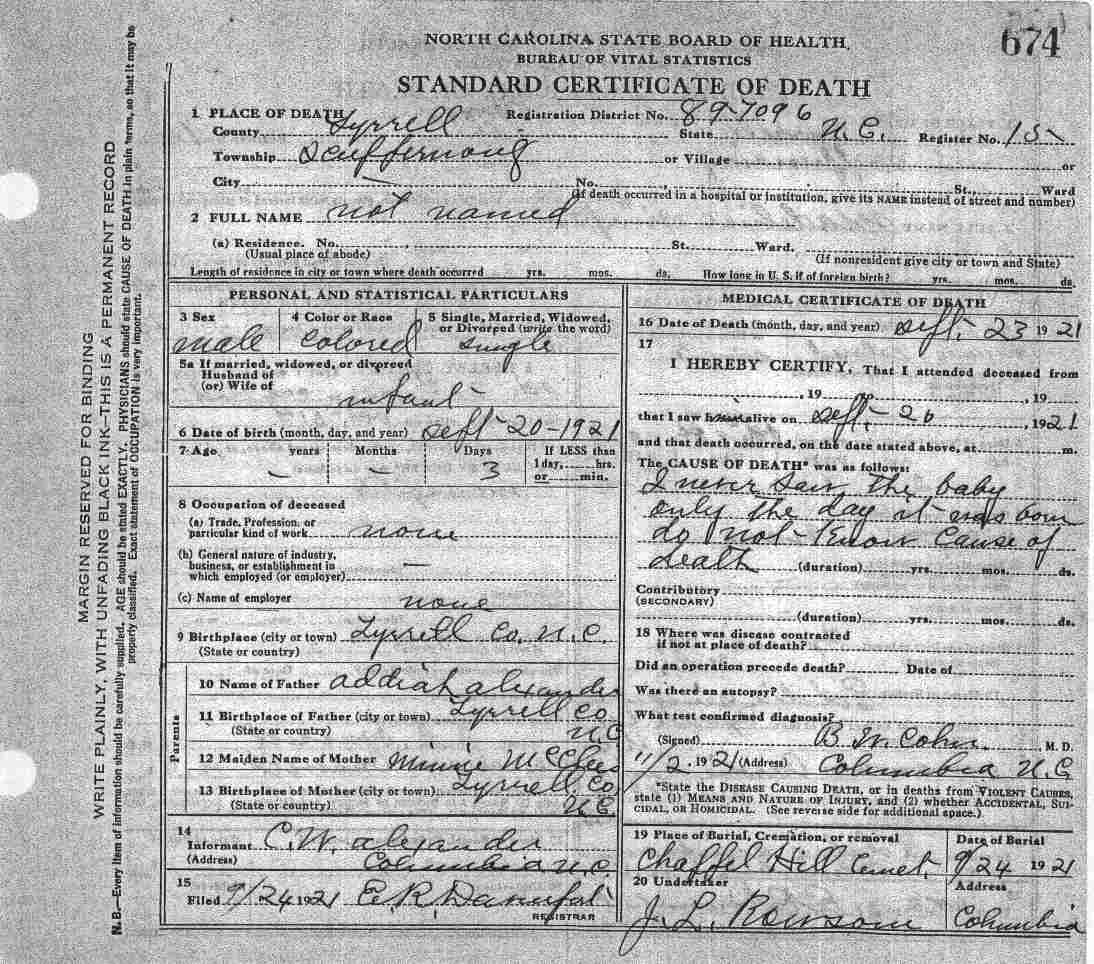 674
NORTH CAROLINA STATE BOARD OF HEALTH,
BUREAU OF VITAL STATISTICS
STANDARD CERTIFICATE OF DEATH
1 PLACE OF DEATH Registration District No. 89-7096
County Tyrrell State N.C. Register No. 15
Township Scuppernong or Village or
City — No. , St., Ward
(If death occurred in a hospital or institution, give its NAME instead of street and number)
2 FULL NAME not named
(a) Residence. No. , St. Ward.
(Usual place of abode) (If nonresident give city or town and State)
Length of residence in city or town where death occurred yrs. mos. ds. How long in U. S. if of foreign birth? yrs. mos. ds.
PERSONAL AND STATISTICAL PARTICULARS
3 Sex 4 Color or Race 5 Single, Married, Widowed,
or Divorced (write the word)
male Colored Single
5a If married, widowed, or divorced
Husband of
(or) Wife of
infant
6 Date of birth (month, day, and year) Sept-20-1921
7 Age years Months Days If LESS than
1 day, hrs.
— — 3 or min.
8 Occupation of deceased
(a) Trade, Profession, or
particular kind of work none
(b) General nature of industry,
business, or establishment in
which employed (or employer) —
(c) Name of employer none
9 Birthplace (city or town) Tyrrell Co. N.C.
(State or country)
Parents
10 Name of Father Addiah Alexander
11 Birthplace of Father (city or town) Tyrrell Co
(State or country) N.C
12 Maiden Name of Mother Minnie McClees
13 Birthplace of Mother (city or town) Tyrrell Co,
(State or country) N.C.
14
Informant C.W. Alexander
(Address) Columbia N.C.
15
Filed 9/24 1921 E R
REGISTRAR
MEDICAL CERTIFICATE OF DEATH
16 Date of Death (month, day, and year) Sept. 23 1921
17
I HEREBY CERTIFY, That I attended deceased from
, 19 to , 19
that I saw him alive on Sept. 20 , 1921
and that death occurred, on the date stated above, at m.
The CAUSE OF DEATH* was as follows:
I never saw the baby
only the day it was born
do not know cause of
death (duration) yrs. mos. ds.
Contributory
(SECONDARY)
(duration) yrs. mos. ds.
18 Where was disease contracted
if not at place of death?
Did an operation precede death? Date of
Was there an autopsy?
What test confirmed diagnosis?
(Signed) B. W. Cohn. M. D.
11/2, 1921 (Address) Columbia N.C
*State the DISEASE CAUSING DEATH, or in deaths from VIOLENT CAUSES,
state (1) MEANS AND NATURE OF INJURY, and (2) whether ACCIDENTAL, SUI-
CIDAL, OR HOMICIDAL. (See reverse side for additional space.)
19 Place of Burial, Cremation, or removal Date of Burial
Chappel Hill Cemet. 9/24 1921
20 Undertaker Address
J. L. Rowsom Columbia
MARGIN RESERVED FOR BINDING
WRITE PLAINLY, WITH UNFADING BLACK INK—THIS IS A PERMANENT RECORD
N. B.—Every item of information should be carefully supplied. AGE should be stated EXACTLY. PHYSICIANS should state CAUSE OF DEATH in plain terms, so that it may be
properly classified. Exact statement of OCCUPATION is very important.